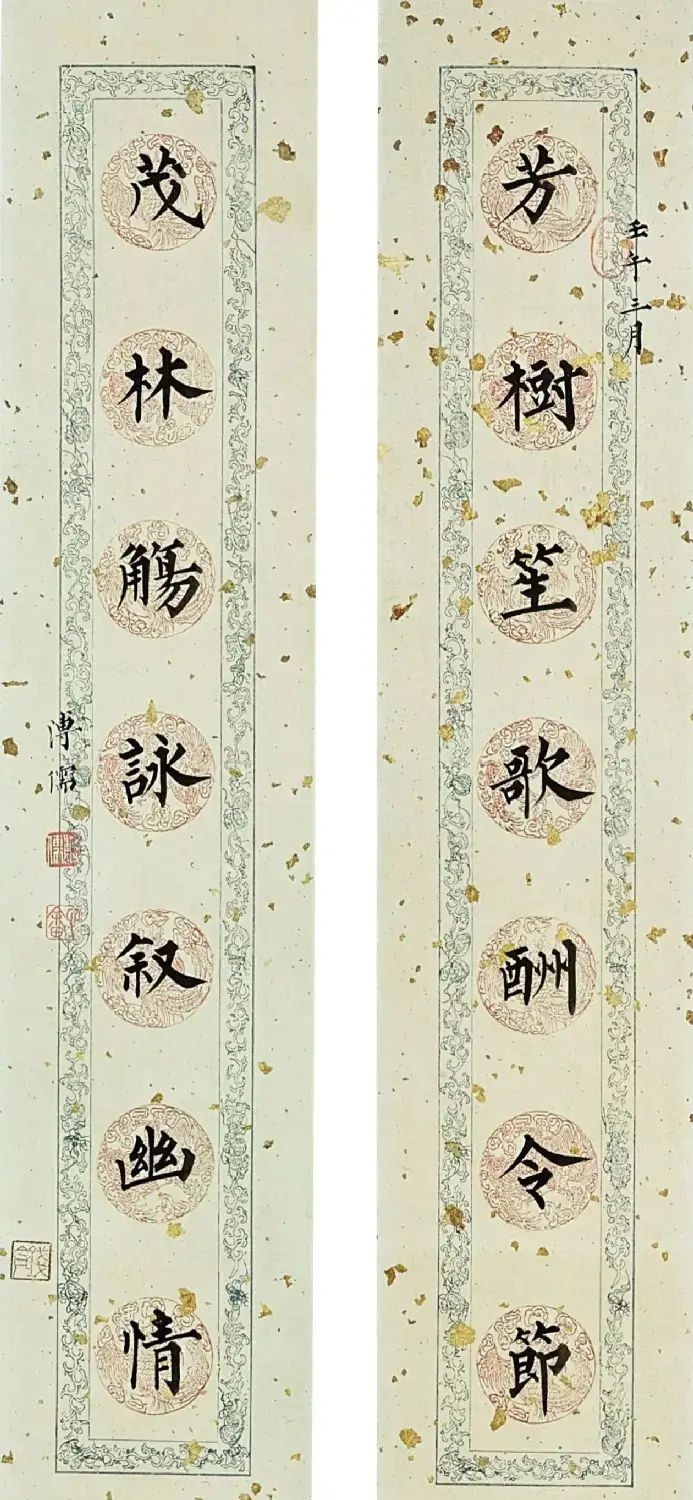 芳樹笙歌酬令節
壬午三月
茂林觴詠叙幽情
溥儒